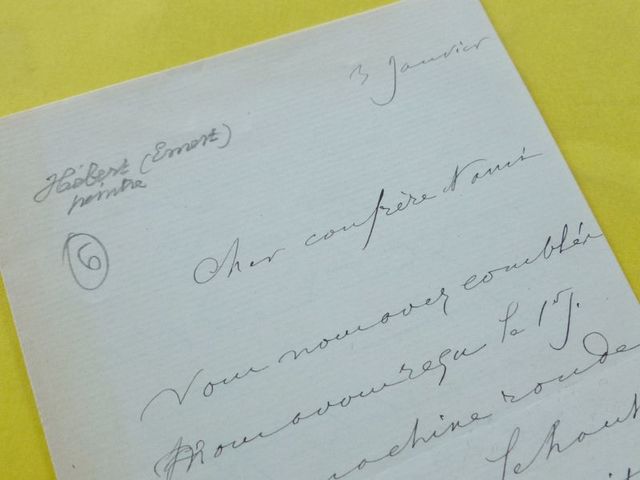 3 Janvier
Hébert (Ernest)
peintre
6
Cher confrère & ami
Vous nous avez comblés
Nous avons reçu le 1er J.
machine ronde